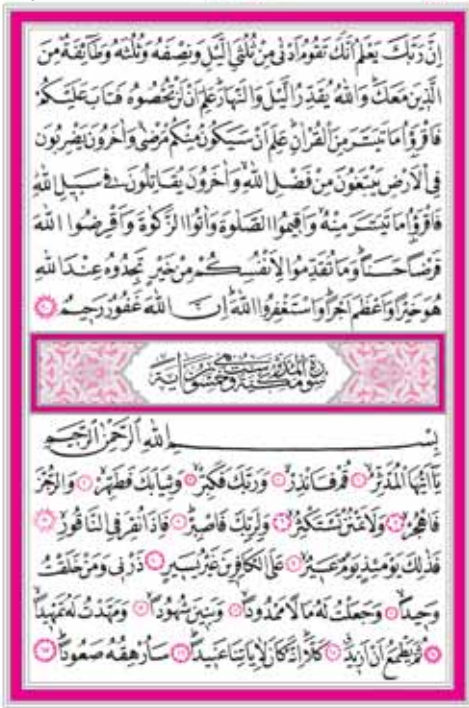 اِنَّ رَبَّكَ يَعْلَمُ اَنَّكَ تَقُومُ اَدْنٰى مِنْ ثُلُثَيِ الَّيْلِ وَنِصْفَهُ وَثُلُثَهُ وَطَٓائِفَةٌ مِنَ
الَّذ۪ينَ مَعَكَۜ وَاللّٰهُ يُقَدِّرُ الَّيْلَ وَالنَّهَارَۜ عَلِمَ اَنْ لَنْ تُحْصُوهُ فَتَابَ عَلَيْكُمْ
فَاقْرَؤُ۫ا مَا تَيَسَّرَ مِنَ الْقُرْاٰنِۜ عَلِمَ اَنْ سَيَكُونُ مِنْكُمْ مَرْضٰىۙ وَاٰخَرُونَ يَضْرِبُونَ
فِي الْاَرْضِ يَبْتَغُونَ مِنْ فَضْلِ اللّٰهِۙ وَاٰخَرُونَ يُقَاتِلُونَ ف۪ي سَب۪يلِ اللّٰهِۘ
فَاقْرَؤُ۫ا مَا تَيَسَّرَ مِنْهُۙ وَاَق۪يمُوا الصَّلٰوةَ وَاٰتُوا الزَّكٰوةَ وَاَقْرِضُوا اللّٰهَ
قَرْضًا حَسَنًاۜ وَمَا تُقَدِّمُوا لِاَنْفُسِكُمْ مِنْ خَيْرٍ تَجِدُوهُ عِنْدَ اللّٰهِ
هُوَ خَيْرًا وَاَعْظَمَ اَجْرًاۜ وَاسْتَغْفِرُوا اللّٰهَۜ اِنَّ اللّٰهَ غَفُورٌ رَح۪يمٌ
سُورَةُ الْمُدَّثِّرِ مَكِّيَّةٌ وَهِيَ سِتٌّ وَخَمْسُونَ اٰيَةً
بِسْمِ اللّٰهِ الرَّحْمٰنِ الرَّح۪يمِ
يَٓا اَيُّهَا الْمُدَّثِّرُۙ ﴿١﴾ قُمْ فَاَنْذِرْۙ ﴿٢﴾ وَرَبَّكَ فَكَبِّرْۙ ﴿٣﴾ وَثِيَابَكَ فَطَهِّرْۙ ﴿٤﴾ وَالرُّجْزَ
فَاهْجُرْۙ ﴿٥﴾ وَلَا تَمْنُنْ تَسْتَكْثِرُۙ ﴿٦﴾ وَلِرَبِّكَ فَاصْبِرْۜ ﴿٧﴾ فَاِذَا نُقِرَ فِي النَّاقُورِۙ ﴿٨﴾
فَذٰلِكَ يَوْمَئِذٍ يَوْمٌ عَس۪يرٌۙ ﴿٩﴾ عَلَى الْكَافِر۪ينَ غَيْرُ يَس۪يرٍ ﴿١٠﴾ ذَرْن۪ي وَمَنْ خَلَقْتُ
وَح۪يدًاۙ ﴿١١﴾ وَجَعَلْتُ لَهُ مَالًا مَمْدُودًاۙ ﴿١٢﴾ وَبَن۪ينَ شُهُودًاۙ ﴿١٣﴾ وَمَهَّدْتُ لَهُ تَمْه۪يدًاۙ
﴿١٤﴾ ثُمَّ يَطْمَعُ اَنْ اَز۪يدَۗ ﴿١٥﴾ كَلَّاۜ اِنَّهُ كَانَ لِاٰيَاتِنَا عَن۪يدًاۜ ﴿١٦﴾ سَاُرْهِقُهُ صَعُودًاۜ ﴿١٧﴾